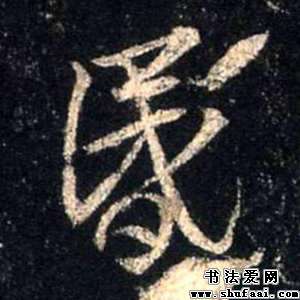 昬
书法爱网
www.shufaai.com